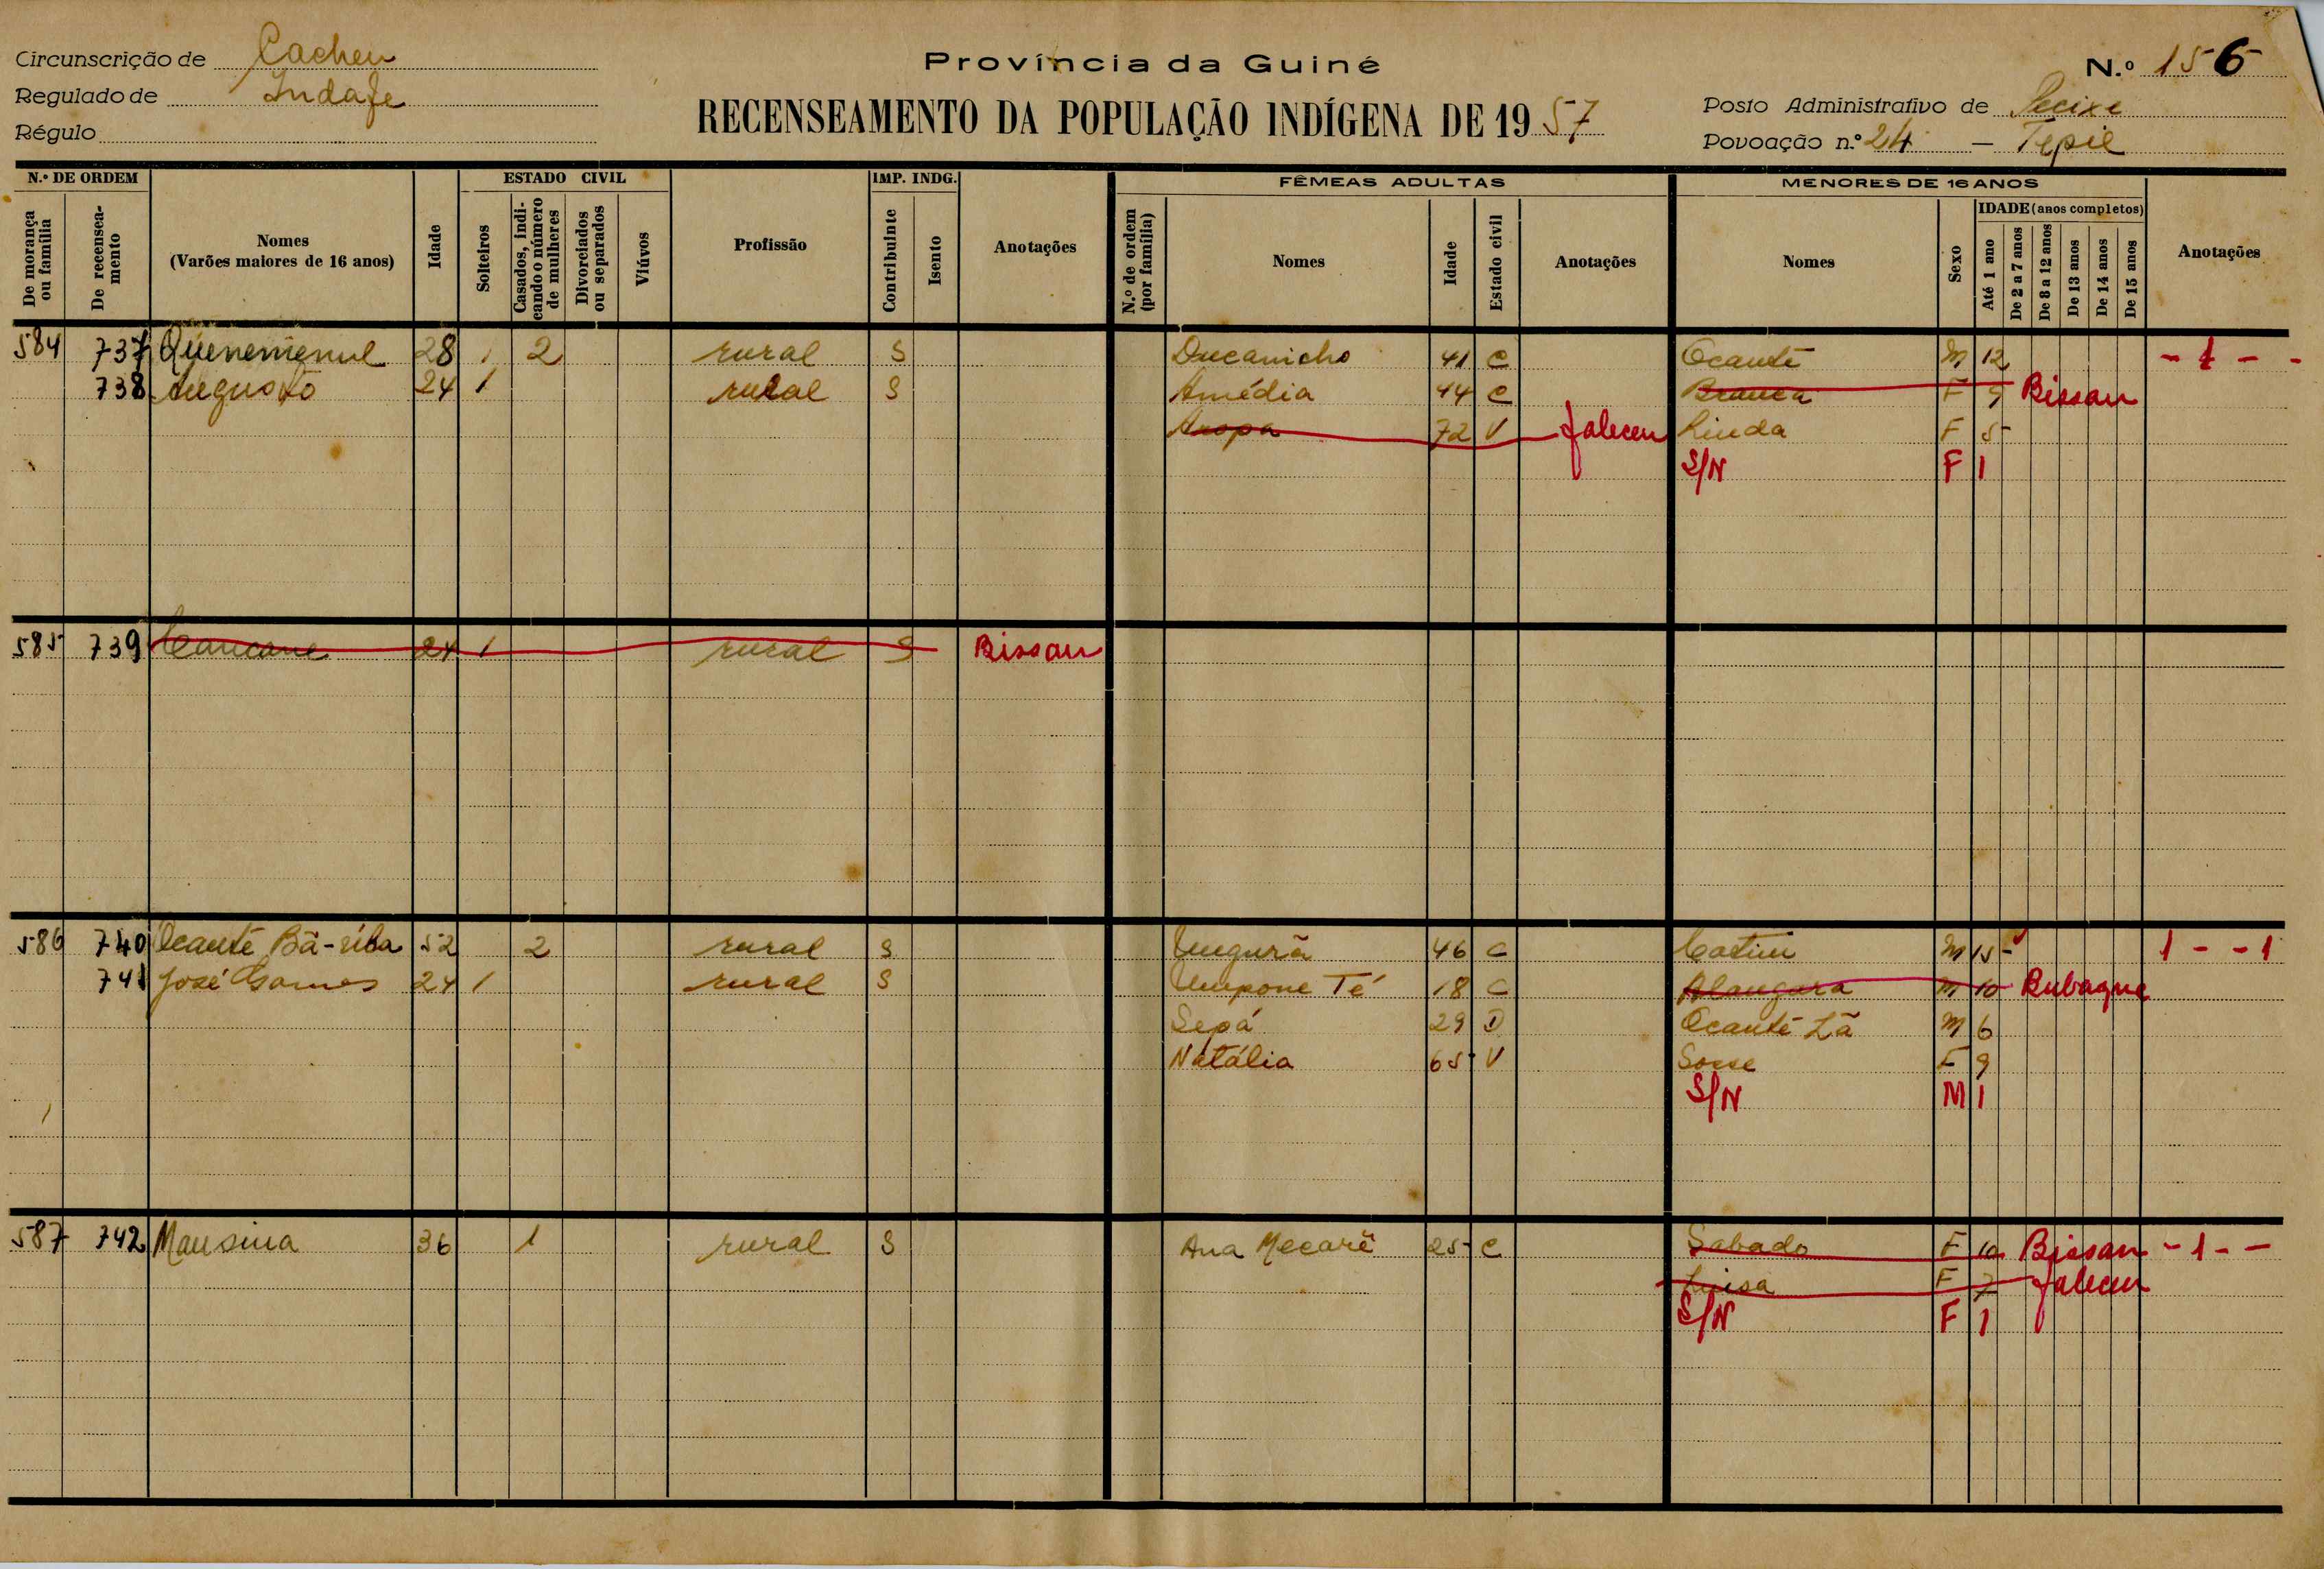 Circunscrição de Cacheu
Regulado de Indafe
Régulo
Província da Guiné
RECENSEAMENTO DA POPULAÇÃO INDÍGENA DE 1957
N.º 156
Posto Administrativo de Pecixe
Povoação n.º 24 — Tepile
N.º DE ORDEM
De morança ou família
De recenseamento
Nomes
(Varões maiores de 16 anos)
Idade
ESTADO CIVIL
Solteiros
Casados, indicando o número de mulheres
Divorciados ou separados
Viúvos
Profissão
IMP. INDG.
Contribuinte
Isento
Anotações
FÊMEAS ADULTAS
N.º de ordem (por família)
Nomes
Idade
Estado civil
Anotações
MENORES DE 16 ANOS
Nomes
Sexo
IDADE (anos completos)
Até 1 ano
De 2 a 7 anos
De 8 a 12 anos
De 13 anos
De 14 anos
De 15 anos
Anotações
584 737 28 2 rural S Ducanicho 41 C Ocanté M 12 - 1 - -
738 Augusto 24 1 rural S Amédia 44 C Branca F 9 Bissau
Aropa 72 V faleceu Linda F 5
S/N F 1
585 739 Cancane 24 1 rural S Bissau
586 740 Ocanté Bã-riba 52 2 rural S Ungurã 46 C Catini M 15 1 - - 1
741 José Gomes 24 1 rural S Umpone Té 18 C Alangara M 10 Bubaque
Sepá 29 D Ocanté Lã M 6
Natália 65 V Sosse F 9
S/N M 1
587 742 Mansina 36 1 rural S Ana Mecarê 25 C Sabado F 10 Bissau - 1 - -
Luisa F 7 faleceu
S/N F 1